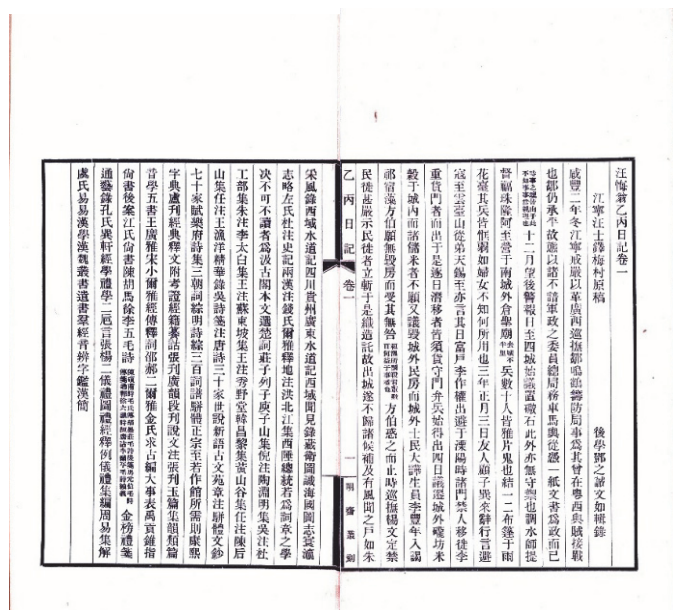 汪悔翁乙丙日記卷一
江寧汪士鐸梅村原稿 後學鄧之誠文如輯錄
咸豐二年冬江寧戒嚴以革廣西巡撫鄒鳴鶴籌防局事爲其曾在粤西與賊接戰
也鄒仍承平故態以諸不諳軍政之委員總局務車馬輿從慿一紙文書爲政而已
十二月望後警報日至四城始議置礮石此外亦無守禦也調水師提
督福珠隆阿至營于南城外倉學廟兵數十人皆雅片鬼也結一二布篷于雨
花臺其兵皆恇弱如婦女不知何所用也三年正月三日友人顧子巽來辭行言避
寇至雲臺山從弟天錫至亦言其日富戶李作權出避于溧陽時諸門禁人移徙李
重貨門者而出于是逐日潛移者皆須貨守門弁兵始得出四日議遷城外礱坊米
穀于城內而諸儲米者不願又議毁城外民房而城外士民大譁生員李豐年入謁
祁宿藻方伯願無毁房而受其無咎方伯惑之而止時巡撫楊文定禁
民徙甚嚴示民徙者立斬于是織造託故出城遂不歸諸候補及有風聞之戶如朱
乙丙日記 卷一 一 明齋叢刻
采風錄西域水道記四川貴州廣東水道記西域聞見錄蔵衛圖識海國圖志寰瀛
志略左氏杜注史記兩漢注錢氏爾雅釋地注洪北江集西陲總統若爲詞章之學
决不可不讀者爲汲古閣本文選楚詞莊子列子庾子山集倪注陶淵明集吳注杜
工部集朱注李太白集王注蘇東坡集王注秀野堂韓昌黎集黃山谷集任注陳后
山集任注王漁洋精華錄吳詩箋注唐詩三十家世說新語古文苑章注駢體文鈔
七十家賦樂府詩集三朝詞綜明詩綜三百詞譜駢體正宗至若作館所需則康熙
字典盧刊經典釋文附考證經籍纂詁張刊廣韻段刊說文注張刊玉篇集韻類篇
音學五書王廣雅宋小爾雅經傳釋詞邵郝二爾雅金氏求古編大事表禹貢錐指
尚書後案江氏尚書陳胡馬徐李五毛詩金榜禮箋
通藝錄孔氏巽軒經學禮學二巵言張楊二儀禮圖禮經釋例儀禮集編周易集解
虞氏易易漢學漢魏叢書遺書羣經音辨字鑑漢簡